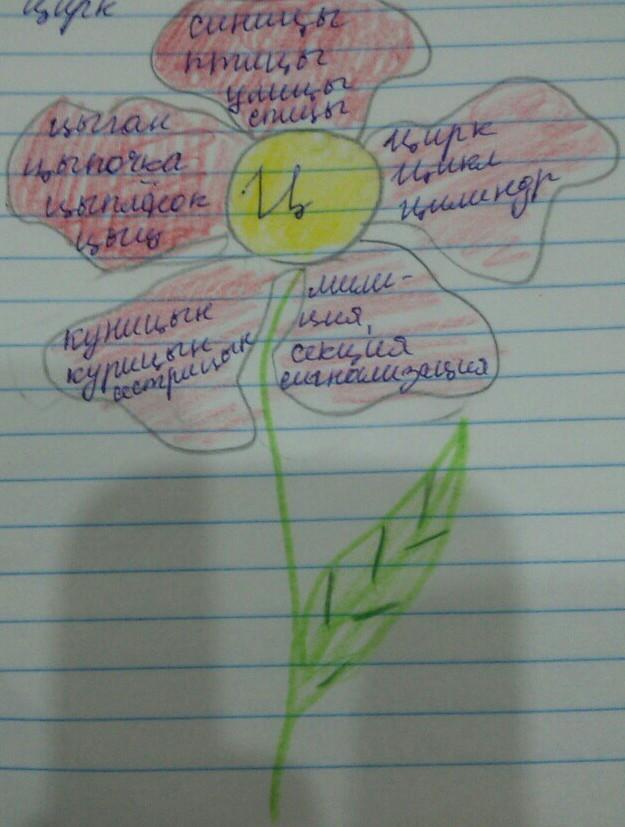 цирк
синицы
птицы
улицы
спицы
цыган
цыпочка
цыплёнок
цыц
Ц
цирк
цикл
цилиндр
куницын
курицын
сестрицын
мили-
ция,
секция
сигнализация